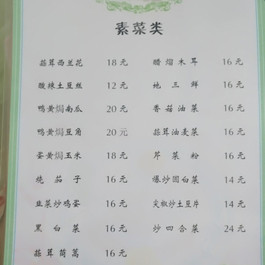 素菜类
蒜茸西兰花 18元 醋熘木耳 16元
酸辣土豆丝 12元 地三鲜 16元
鸭黄焗南瓜 20元 香菇油菜 16元
鸭黄焗豆角 20元 蒜茸油麦菜 16元
蛋黄焗玉米 18元 芹菜粉 16元
烧茄子 16元 爆炒圆白菜 14元
韭菜炒鸡蛋 16元 尖椒炒土豆片 14元
黑白菜 16元 炒四合菜 24元
蒜茸茼蒿 16元